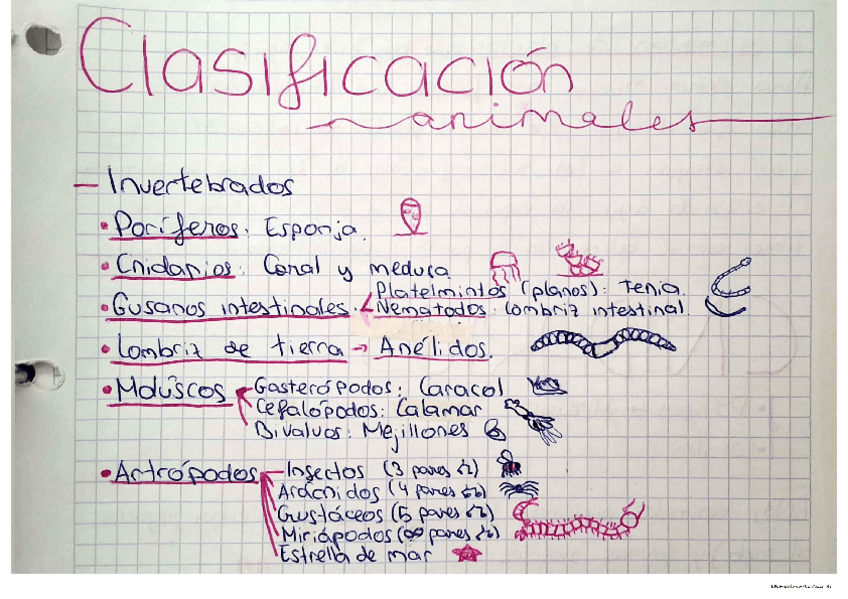 Clasificación
animales
— Invertebrados
• Poríferos: Esponja.
• Cnidarios: Coral y medusa
• Gusanos intestinales: Platelmintos (planos): Tenia
Nematodos: lombriz intestinal
• Lombriz de tierra → Anélidos.
• Molúscos Gasterópodos: Caracol
Cefalópodos: Calamar
Bivalvos: Mejillones
• Artrópodos Insectos (3 pares)
Arácnidos (4 pares)
Custáceos (5 pares)
Miriápodos (∞ pares)
Estrella de mar